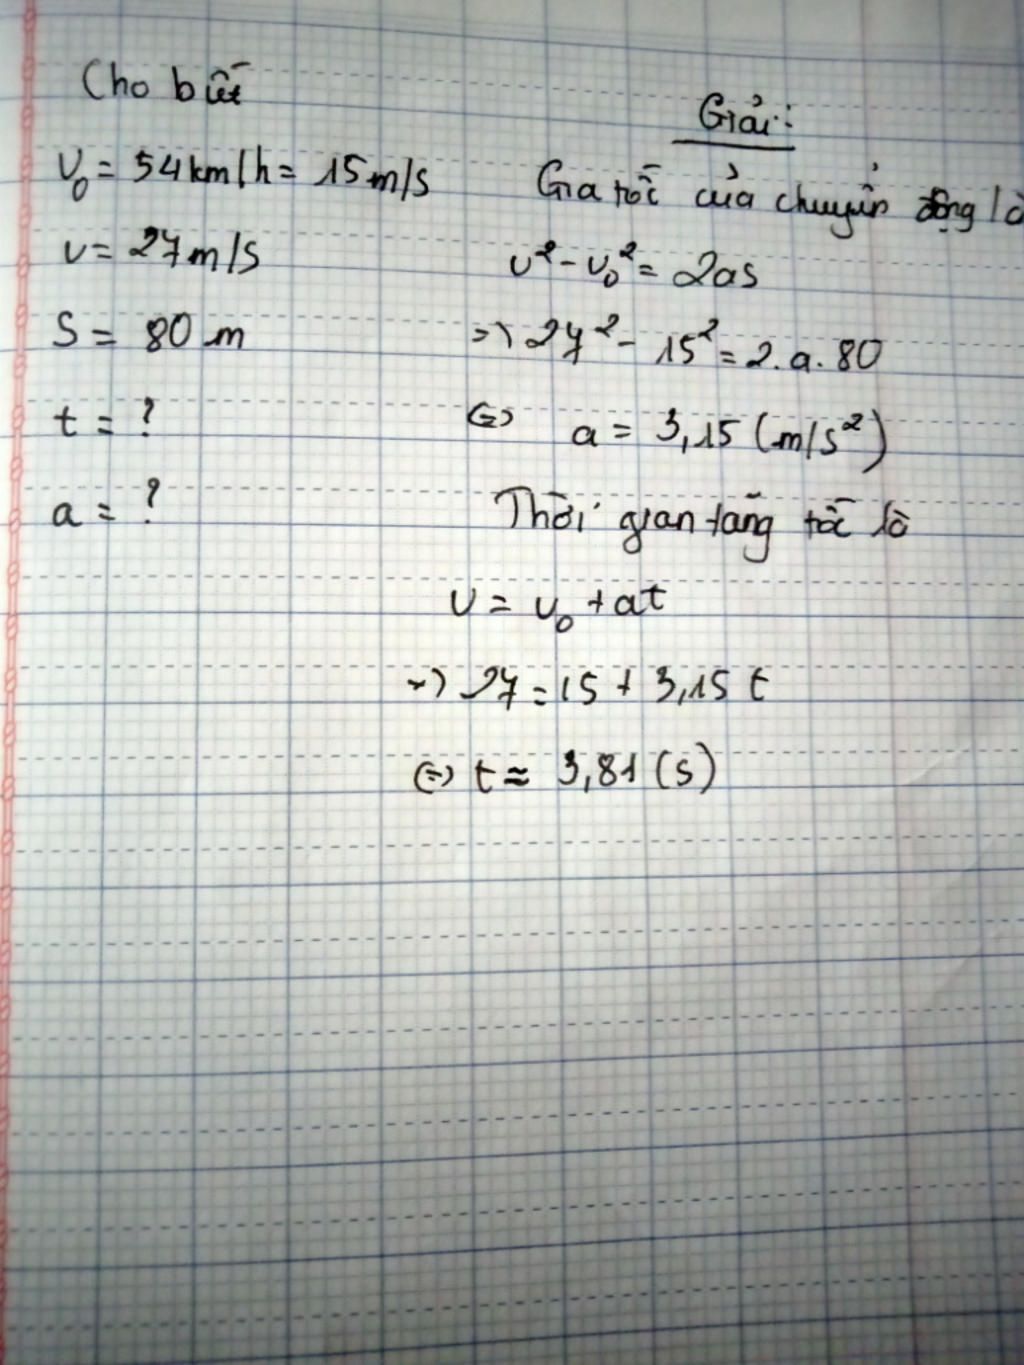 Cho biết
V₀ = 54km/h = 15m/s
v = 27m/s
S = 80 m
t = ?
a = ?
Giải:
Gia tốc của chuyển động là
v² - v₀² = 2as
=> 27² - 15² = 2.a.80
<=> a = 3,15 (m/s²)
Thời gian tăng tốc là
v = v₀ + at
=> 27 = 15 + 3,15 t
<=> t ≈ 3,81 (s)